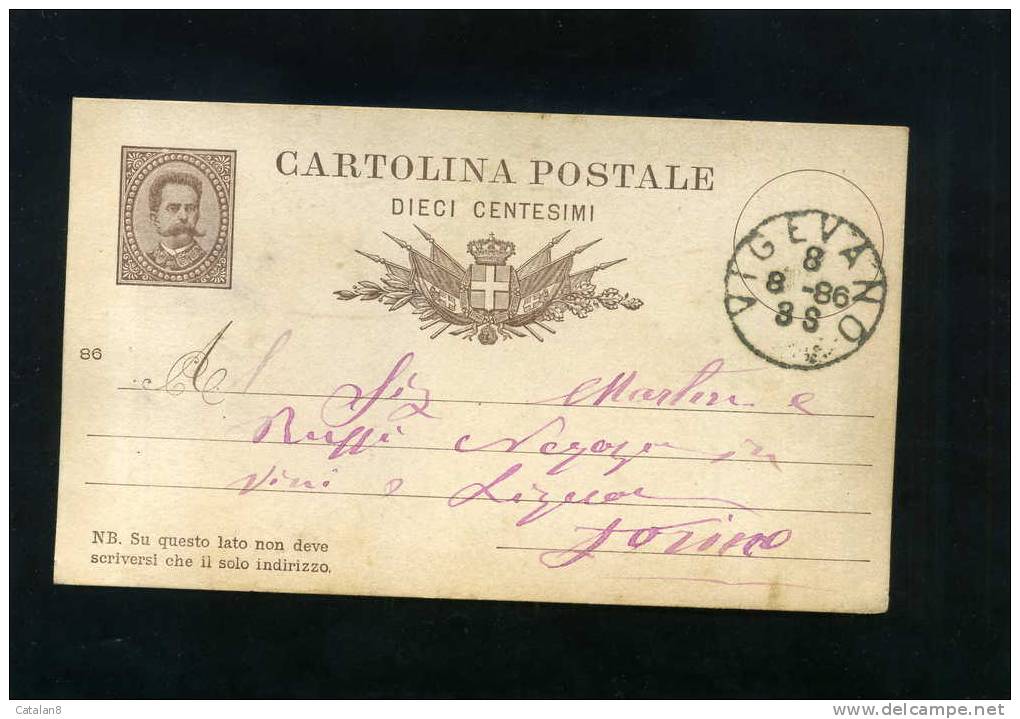 CARTOLINA POSTALE
DIECI CENTESIMI
VIGEVANO
8
8 -86
3 S
86
Al Sig Martini e
Ruffi Negoz in
Vini e Liquo
Torino
NB. Su questo lato non deve
scriversi che il solo indirizzo.
Catalan8
delcampe.net